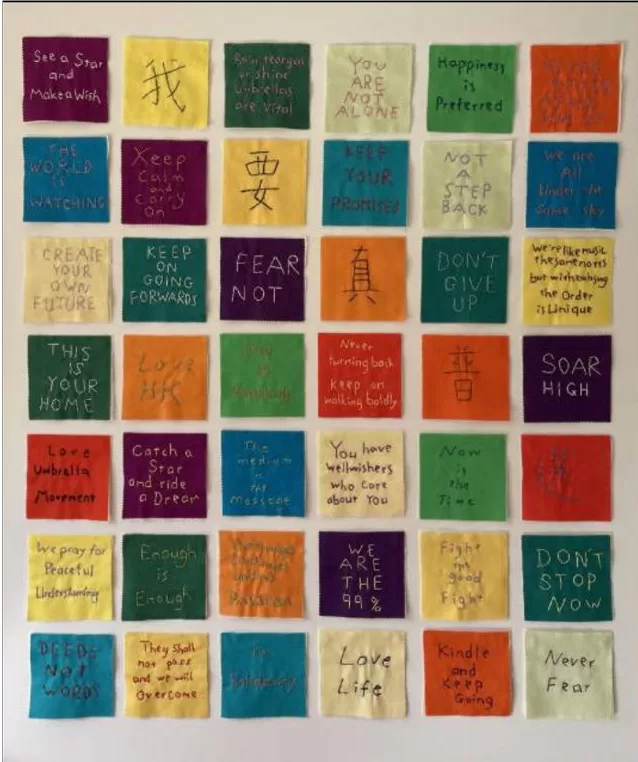 See a Star
and
Make a Wish
我
Rain teargas
or shine
Umbrellas
are Vital
YOU
ARE
NOT
ALONE
Happiness
is
Preferred
THE
WORLD
IS
WATCHING
Keep
Calm
and
Carry
On
要
KEEP
YOUR
PROMISES
NOT
A
STEP
BACK
We are
All
Under the
Same sky
CREATE
YOUR
OWN
FUTURE
KEEP
ON
GOING
FORWARDS
FEAR
NOT
真
DON'T
GIVE
UP
We're like music
The same notes
but
the Order
is Unique
THIS
IS
YOUR
HOME
Love
HK
Never
turning back
keep on
walking boldly
普
SOAR
HIGH
Love
Umbrella
Movement
Catch a
Star
and ride
a Dream
The
medium
is the
Message
You have
wellwishers
who care
about You
Now
is
the
Time
We pray for
Peaceful
Understanding
Enough
is
Enough
WE
ARE
THE
99%
Fight
the
good
Fight
DON'T
STOP
NOW
DEEDS
NOT
WORDS
They shall
not pass
and we will
Overcome
Love
Life
Kindle
and
Keep
Going
Never
Fear